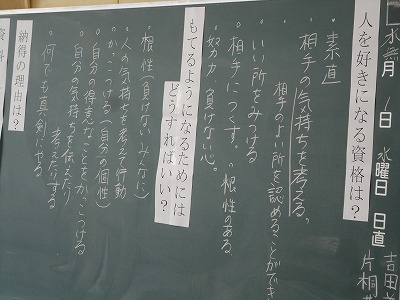 水無月 1日 水曜日 日直
吉田
片桐
人を好きになる資格は?
・素直
相手の気持ちを考える。
相手のよい所を認めることができ
・いい所をみつける
・相手につくす。・根性のある
・努力 負けない心。
もてるようになるためには
どうすればいい?
・根性(負けない みんなに)
・人の気持ちを考えて行動
・かっこつける(自分の個性)
・自分の得意なことをかっこつける
・自分の気持ちを伝えたり
考えたりする
・何でも真剣にやる
納得の理由は?
資料